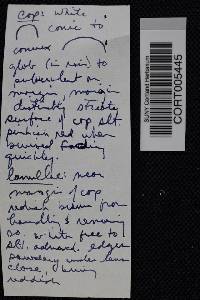 Cop: White
conic to
convex
glob (in rain) to
pubescent on
margin margin
distinctly striate
surface of cap slt.
pinkish red when
bruised fading
quickly.
Lamellae: near
margin of cap
reddish brown from
handling & remaining
so. white free to
slt. adnexed. edges
powdery under lens
close, 
reddish
SUNY Cortland Herbarium
CORT005445